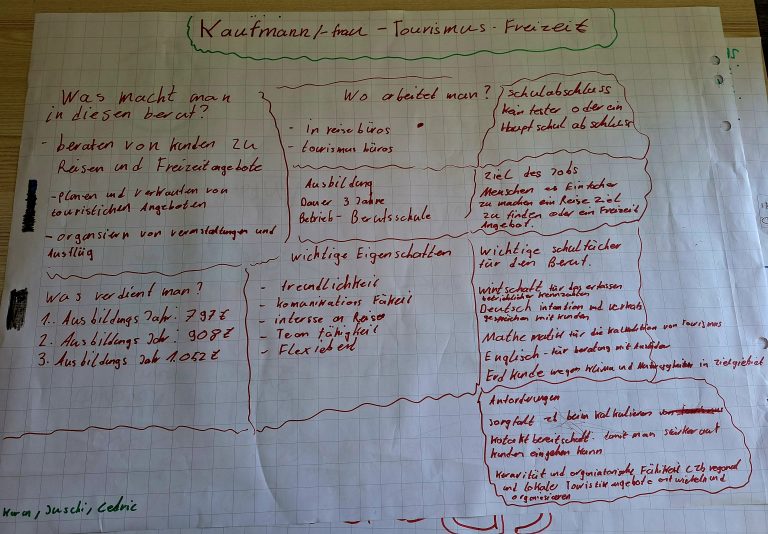 Kaufmann/-frau - Tourismus - Freizeit
Was macht man
in diesen beruf?
- beraten von kunden zu
Reisen und Freizeitangebote
- planen und verkaufen von
touristichen Angeboten
- organsiern von veranstaltungen und
Ausflüg
Was verdient man?
1. Ausbildungs Jahr: 797€
2. Ausbildungs Jahr: 908€
3. Ausbildungs Jahr 1.052€
Wo arbeitet man?
- in reisebüros
- tourismus büros
Ausbildung
Dauer 3 Jahre
Betrieb - Berufsschule
wichtige Eigenschaften
- freundlichkeit
- komunikations Fäkeit
- intersse an Reise
- Team fähigkeil
- Flexiebest
schulabschluss
kein fester oder ein
Hauptschul abschluss
Ziel des Jobs
Menschen es Einfacher
zu machen ein Reise Ziel
zu finden oder ein Freizeit
Angebot.
wichtige schulfächer
für den Beruf.
wirtschaft für das erfassen
betrieblicher kennzahlen
Deutsch
gesprächen mit kunden
Mathematik für die kalkulation von tourismus
Englisch - für beratung mit
Erdkunde wegen Klima und in zielgebiet
Anforderungen
sorgfalt zb beim kalkulieren
kotaktbereitschaft damit man stärker auf
kunden eingehen kann
und organiatorische Fähikeit (zb regonal
und lokale Touristik angebote entwickeln und
organisieren
Juschi, Cedric